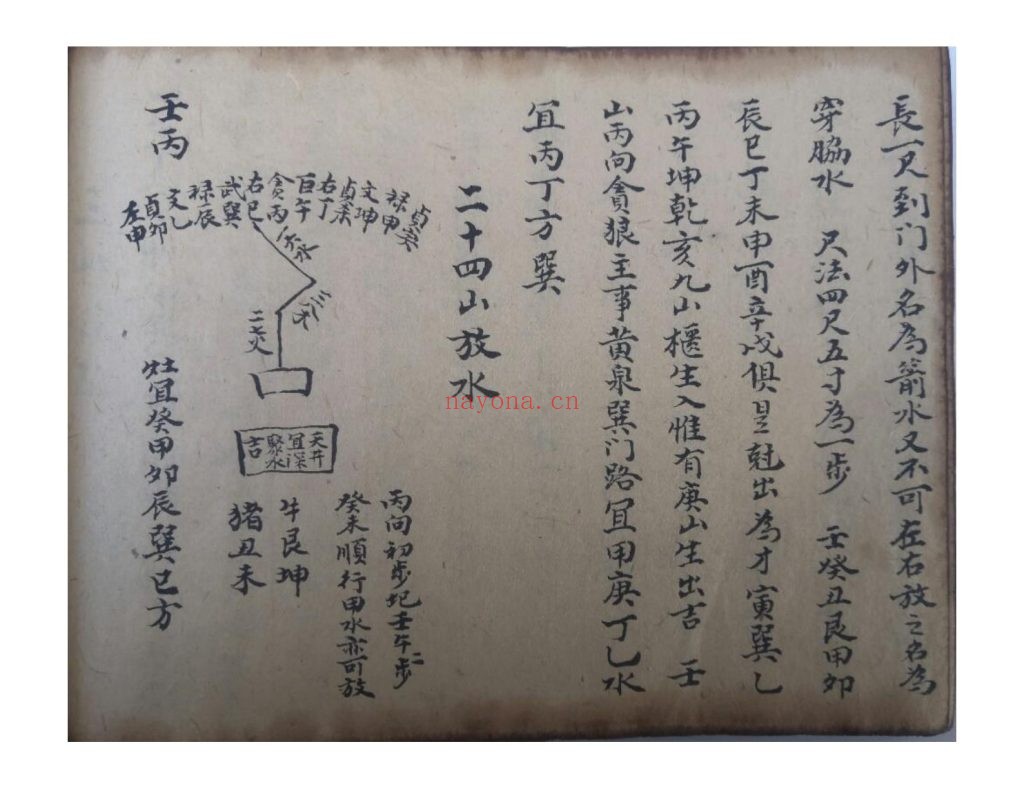 長一尺到门外名為箭水又不可在右放之名為
穿脇水　尺法四尺五寸為一步　壬癸丑艮甲卯
辰巳丁未申酉辛戌俱是尅出為才寅巽乙
丙午坤乾亥九山樞生入惟有庚山生出吉　壬
山丙向貪狼主事黃泉巽门路宜甲庚丁乙水
宜丙丁方巽
二十四山放水
貞寅
禄甲
文坤
貞未
右丁
巨午
貪丙
右巳
武巽
禄辰
文乙
貞卯
左申
一六水
三八木
二七火
天井
宜深
聚水
吉
丙向初步圯壬午二步
癸未順行甲水亦可放
牛艮坤
猪丑未
壬丙
灶宜癸甲卯辰巽巳方
nayona.cn